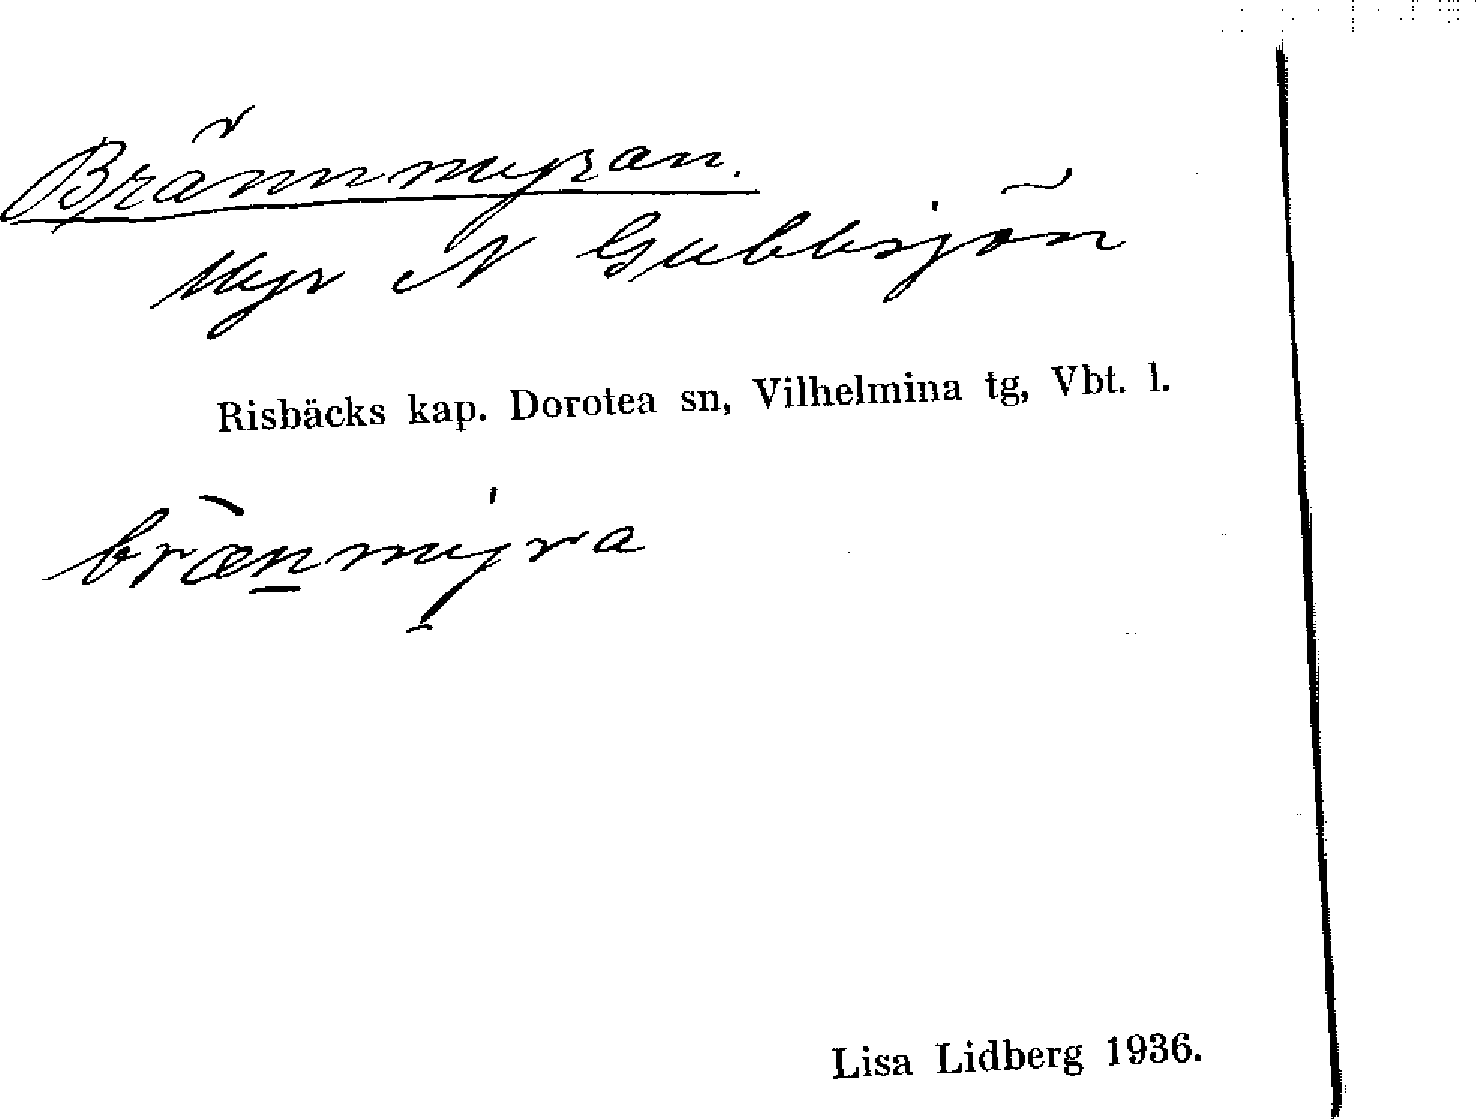 Brännmyran.
Myr N Gubbsjön
Risbäcks kap. Dorotea sn, Vilhelmina tg, Vbt. l.
bræ̀n̲my̠ra
Lisa Lidberg 1936.